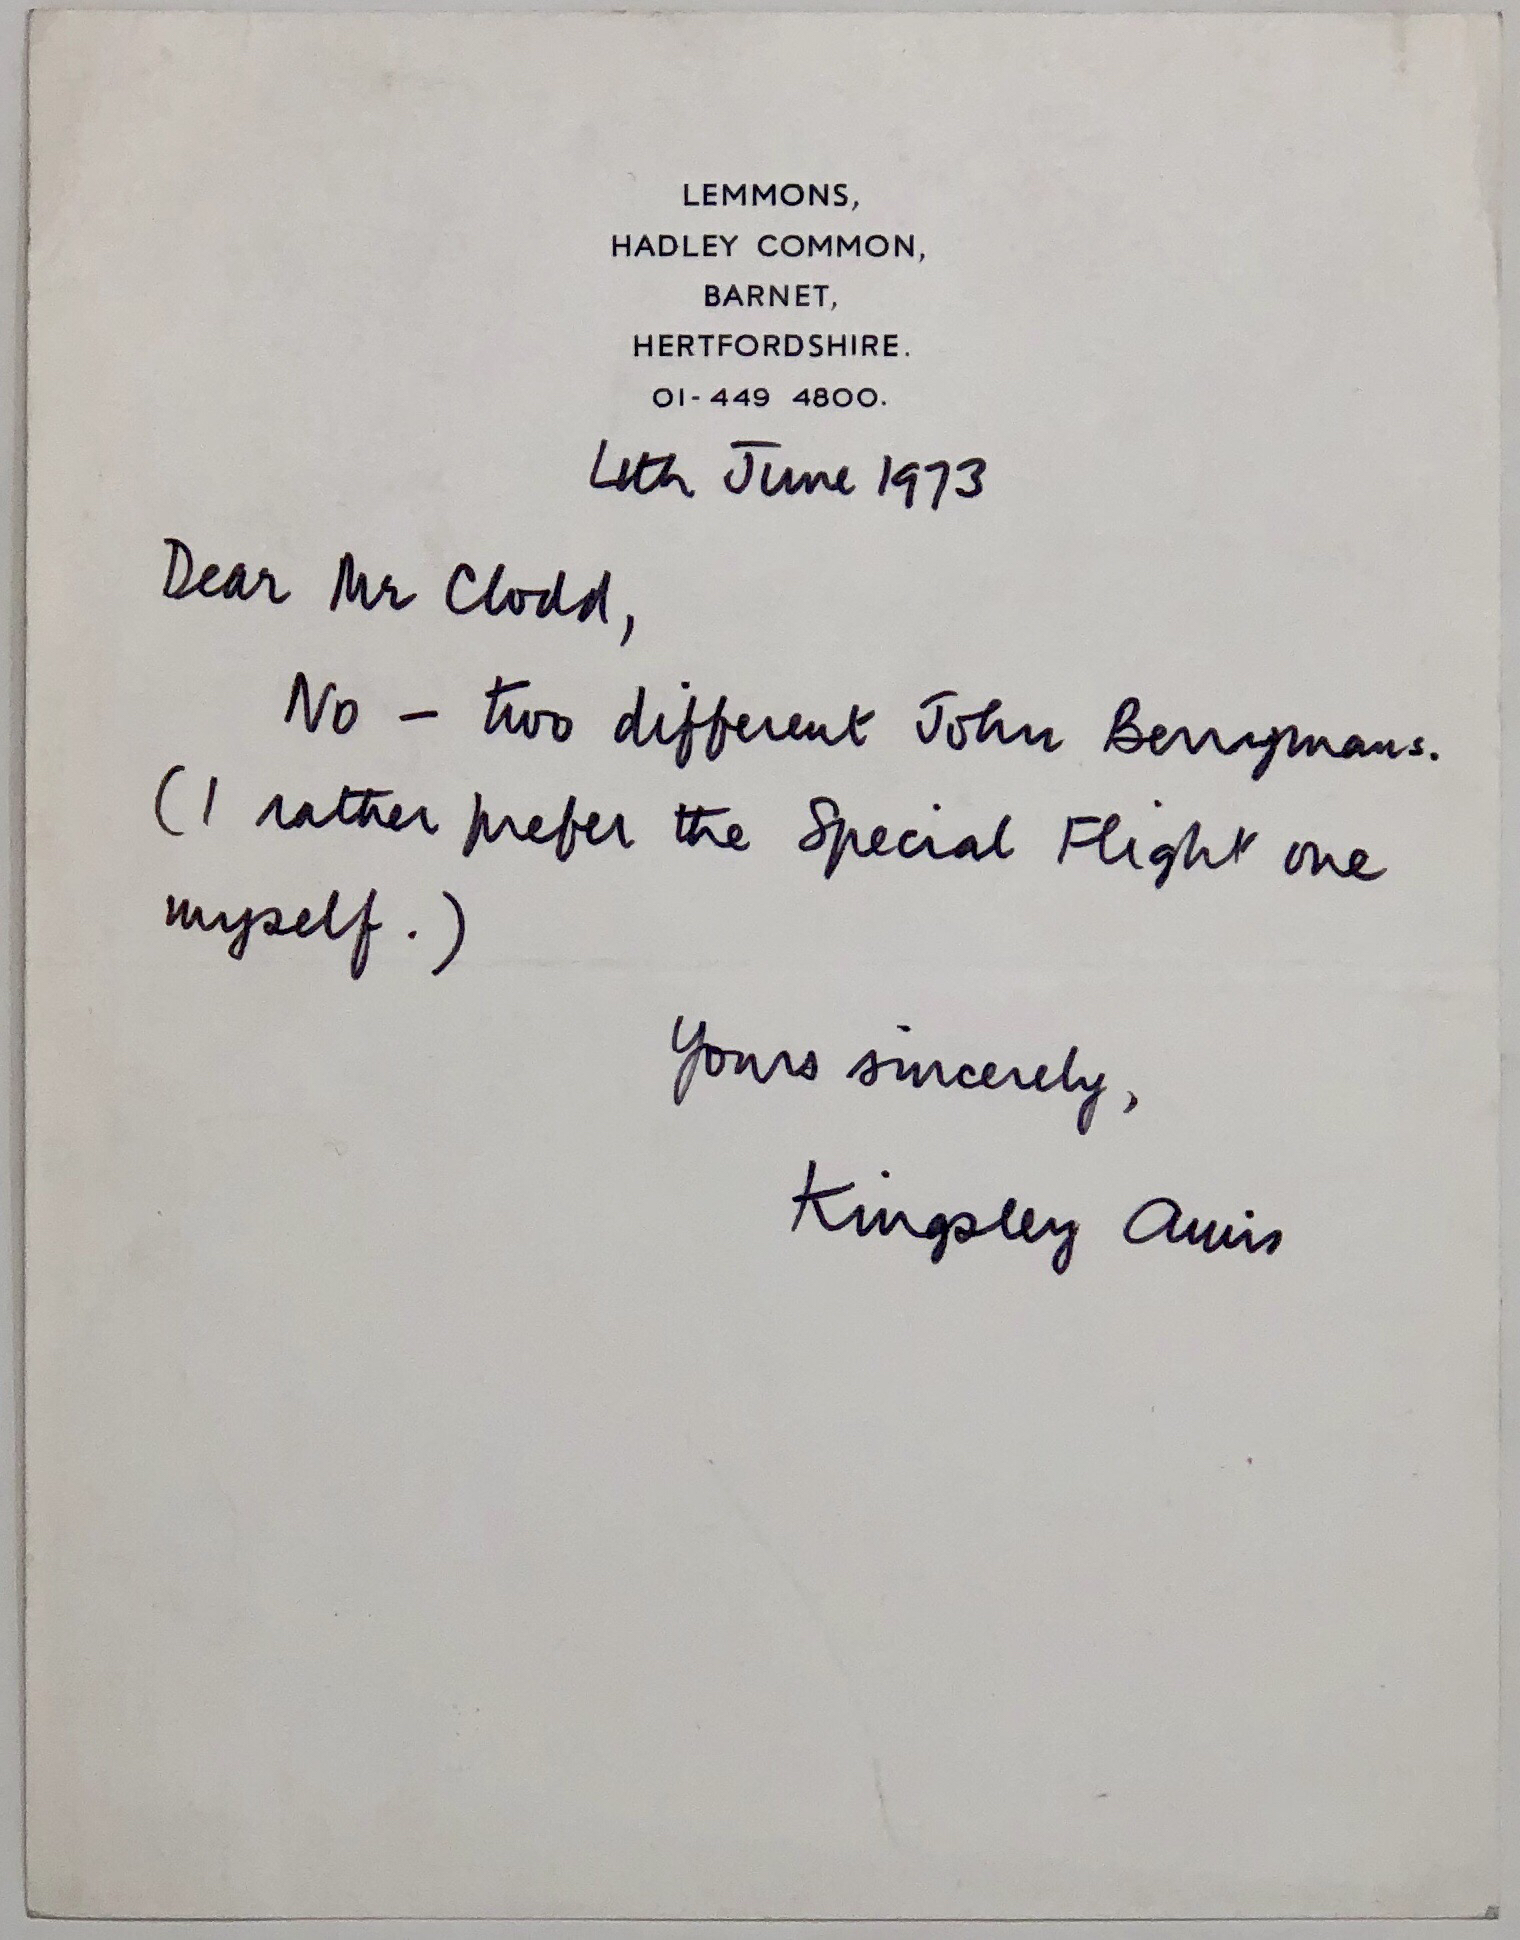 LEMMONS,
HADLEY COMMON,
BARNET,
HERTFORDSHIRE.
01-449 4800.
4th June 1973
Dear Mr Clodd,
No – two different John Berrymans.
(I rather prefer the Special Flight one
myself.)
Yours sincerely,
Kingsley Amis